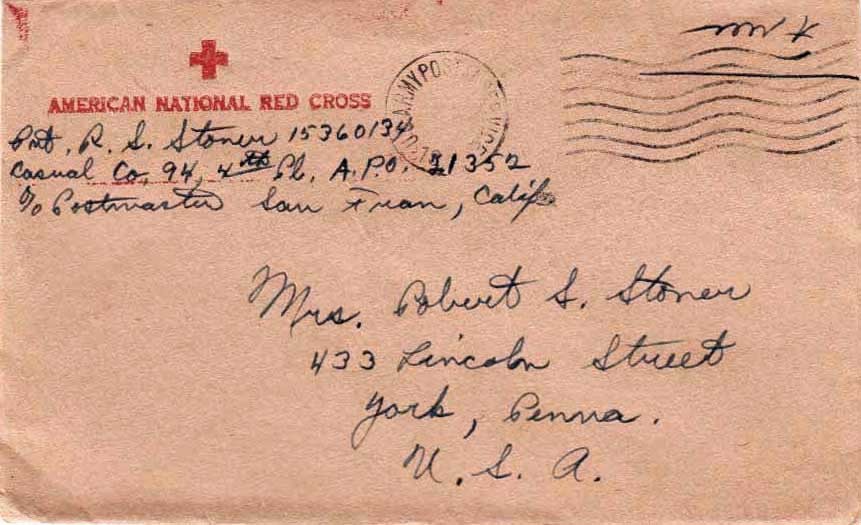 Free
AMERICAN NATIONAL RED CROSS
ARMY POSTAL SERVICE
Pvt. R. S. Stoner 15360134
Casual Co. 94, 4th Pl. A.P.O. 21352
c/o Postmaster San Fran, Calif
Mrs. Robert S. Stoner
433 Lincoln Street
York, Penna.
U. S. A.